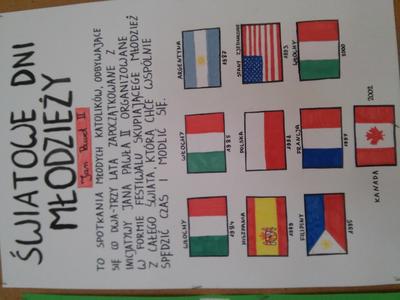 ŚWIATOWE DNI
MŁODZIEŻY
Jan Paweł II
TO SPOTKANIA MŁODYCH KATOLIKÓW, ODBYWAJĄCE
SIĘ CO DWA-TRZY LATA ZAPOCZĄTKOWANE Z
INICJATYWY JANA PAWŁA II ORGANIZOWANE
W FORMIE FESTIWALU SKUPIAJĄCEGO MŁODZIEŻ
Z CAŁEGO ŚWIATA, KTÓRA CHCE WSPÓLNIE
SPĘDZIĆ CZAS I MODLIĆ SIĘ.
WŁOCHY
1984
WŁOCHY
1985
ARGENTYNA
1987
HISZPANIA
1989
POLSKA
1991
STANY ZJEDNOCZONE
1993
FILIPINY
1995
FRANCJA
1997
WŁOCHY
2000
KANADA
2002